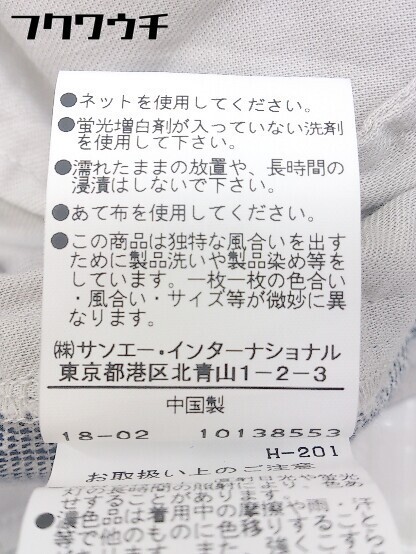 フクウクチ
●ネットを使用してください。
●蛍光増白剤が入っていない洗剤
を使用して下さい。
●濡れたままの放置や、長時間の
浸漬はしないで下さい。
●あて布を使用してください。
●この商品は独特な風合いを出す
ために製品洗いや製品染め等を
しています。一枚一枚の色合い
・風合い・サイズ等が微妙に異
なります。
㈱サンエー・インターナショナル
東京都港区北青山1-2-3
中国製
18-02 10138553
H-201
お取扱い上のご注意
灯の長時間の照射により、色あ
せすることがあります。
●濃色品は着用中の摩擦や雨、汗